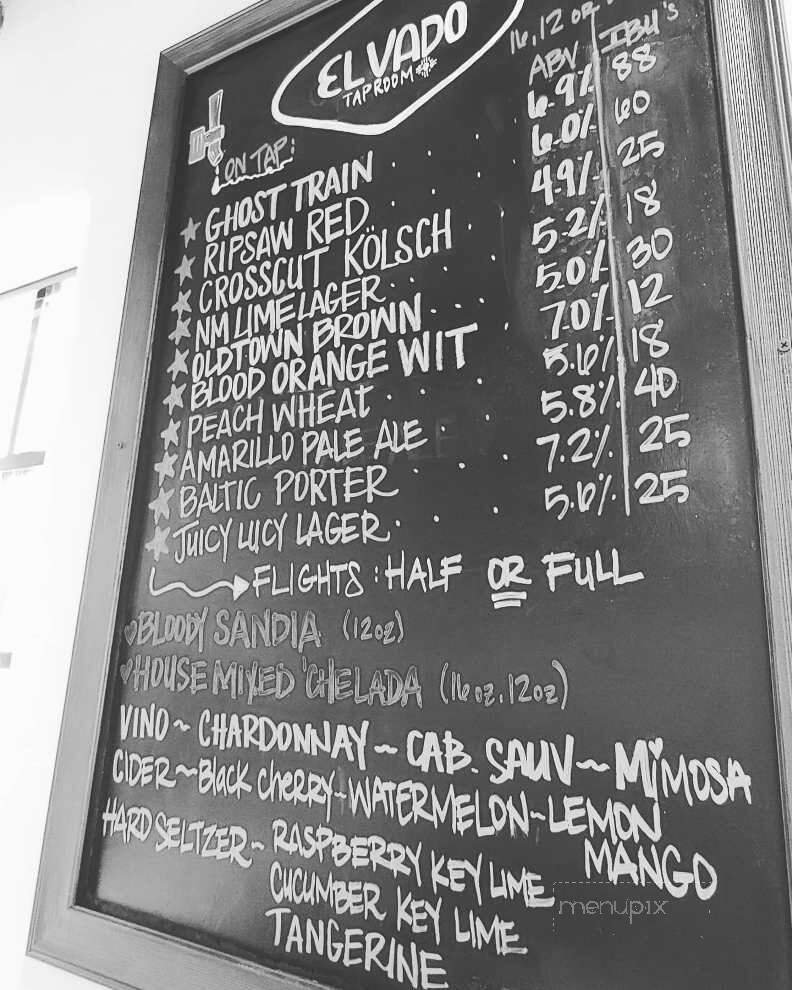 EL VADO
TAPROOM
16, 12 OR
ON TAP:
ABV IBU's
★ GHOST TRAIN . . . 6.9% 88
★ RIPSAW RED . . . 6.0% 60
★ CROSSCUT KÖLSCH . . 4.9% 25
★ NM LIME LAGER . . . 5.2% 18
★ OLDTOWN BROWN . . . 5.0% 30
★ BLOOD ORANGE WIT . 7.0% 12
★ PEACH WHEAT . . . 5.6% 18
★ AMARILLO PALE ALE . . . 5.8% 40
★ BALTIC PORTER . . . 7.2% 25
★ JUICY LUCY LAGER . . . 5.6% 25
FLIGHTS: HALF OR FULL
♡ BLOODY SANDIA (12oz)
♡ HOUSE MIXED 'CHELADA (16oz, 12oz)
VINO ~ CHARDONNAY ~ CAB. SAUV ~ MiMOSA
CIDER ~ Black Cherry ~ WATERMELON ~ LEMON
MANGO
HARD SELTZER ~ RASPBERRY KEY LIME
CUCUMBER KEY LIME
TANGERINE
menupix